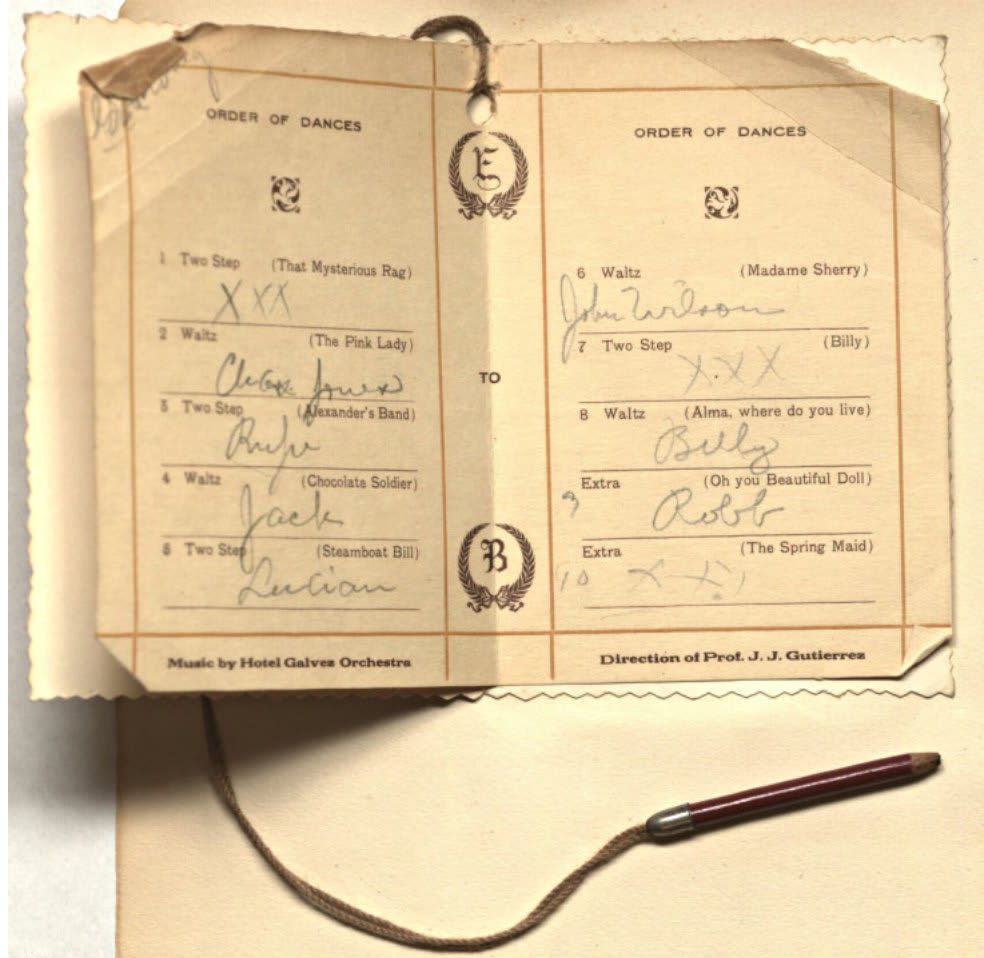 ORDER OF DANCES
1 Two Step (That Mysterious Rag)
XXX
2 Waltz (The Pink Lady)
Jones
3 Two Step (Alexander's Band)
4 Waltz (Chocolate Soldier)
Jack
5 Two Step (Steamboat Bill)
Lucian
Music by Hotel Galvez Orchestra
E
TO
B
ORDER OF DANCES
6 Waltz (Madame Sherry)
John Wilson
7 Two Step (Billy)
X.XX
8 Waltz (Alma, where do you live)
Billy
Extra (Oh you Beautiful Doll)
9 Robb
Extra (The Spring Maid)
10 X X
Direction of Prof. J. J. Gutierrez